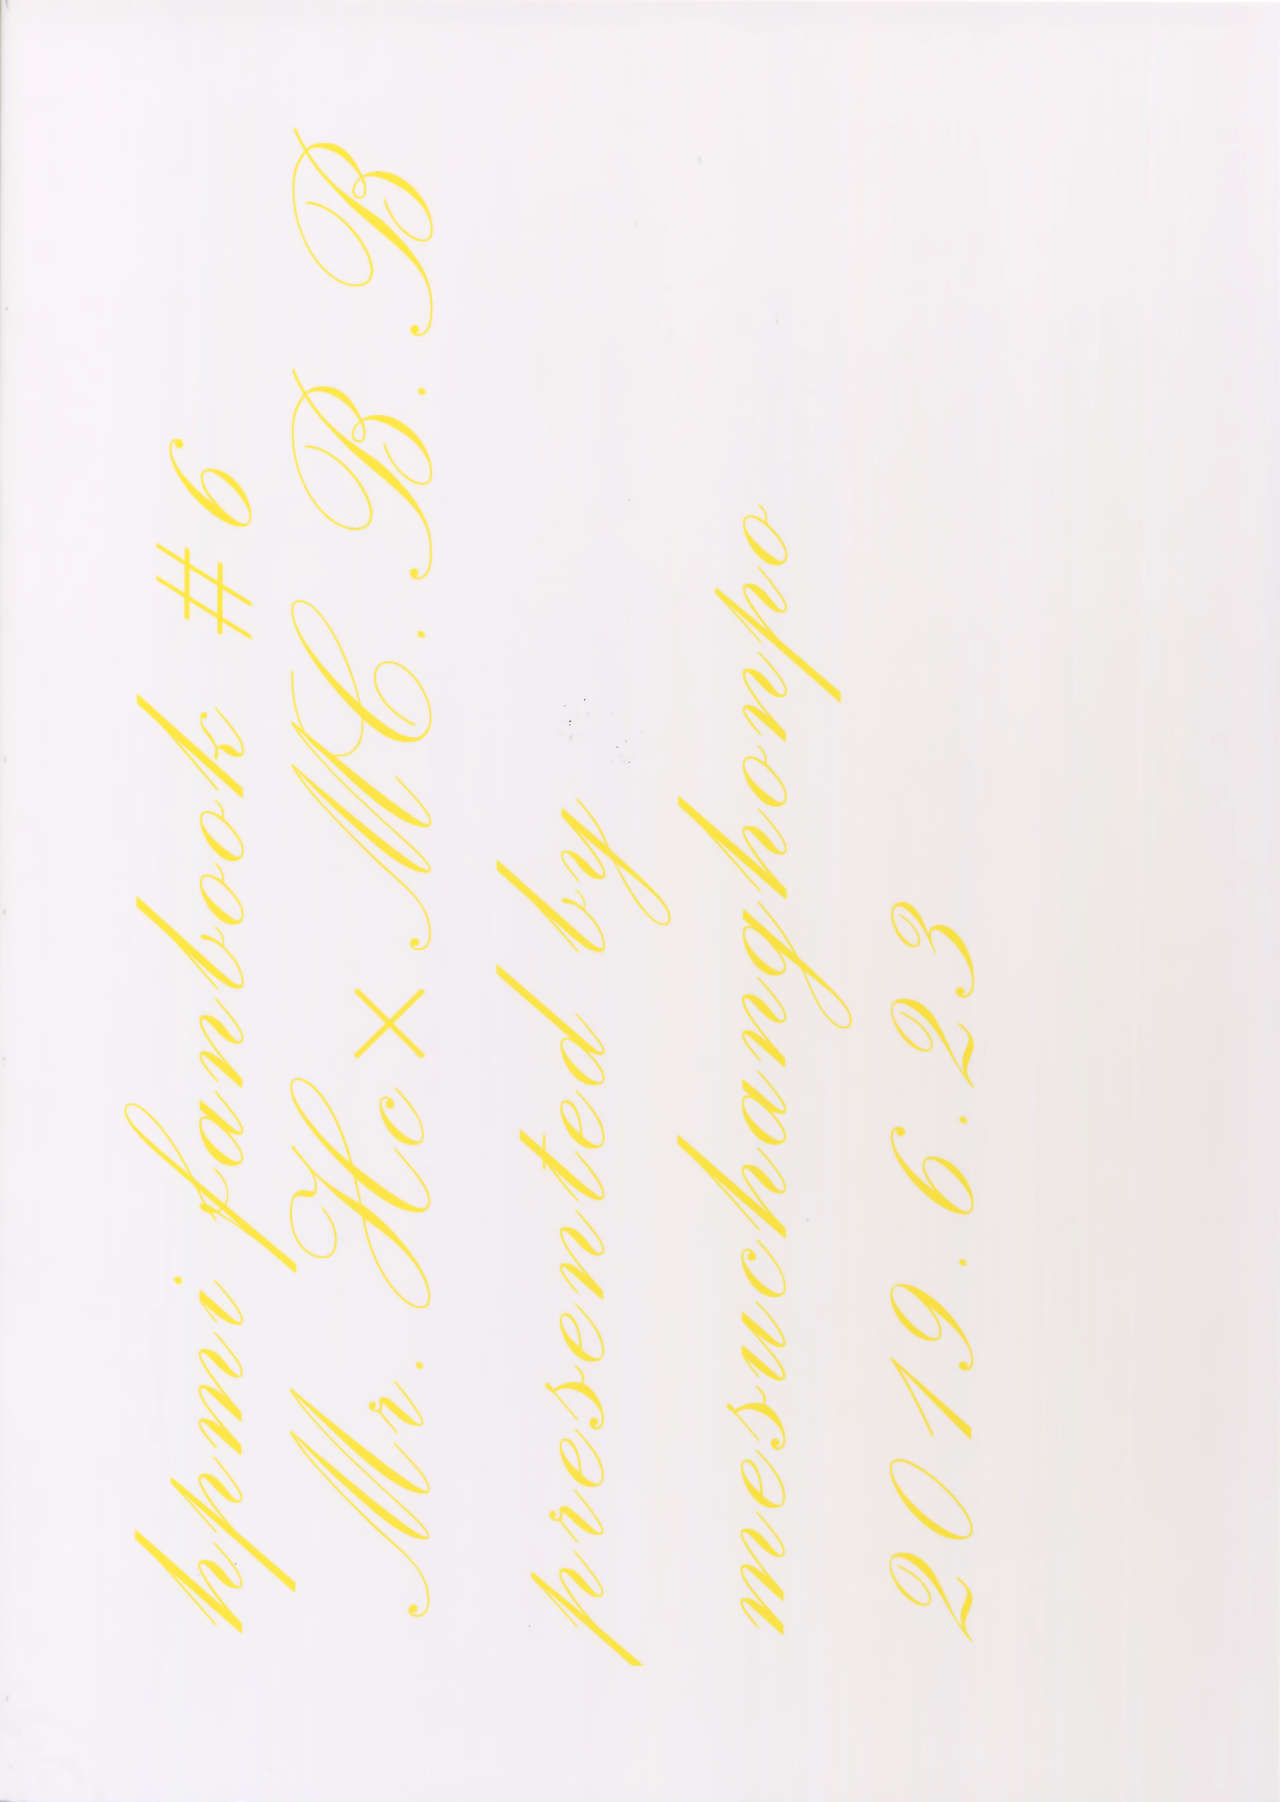 hpmi fanbook #6
Mr. Hc×MC. B. B
presented by
mesuchanghonpo
2019. 6. 23